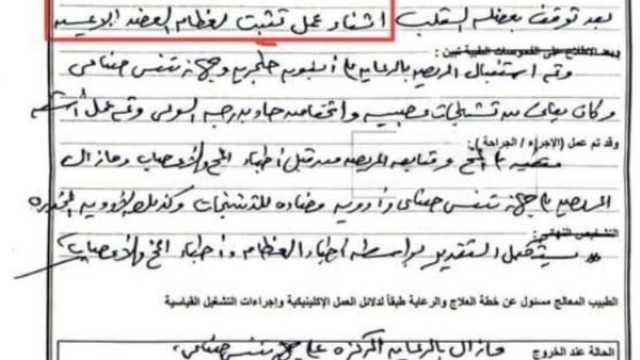 بعد توقف بعضلة القلب أثناء عمل تثبيت لعظام العضد الايسر
وبعد الاطلاع على الفحوصات الطبية تبين :
وتم استقبال المريض بالرعاية على أنبوبة حنجرية وجهاز تنفس صناعي
وكان يعاني من تشنجات عصبيه وانخفاض حاد بدرجة الوعي وتم عمل أشعة
وقد تم عمل (الإجراء / الجراحة) :
مقطعيه على المخ ومتابعه المريض من قبل أطباء المخ والأعصاب ومازال
المريض على جهاز تنفس صناعي وأدوية مضاده للتشنجات وكذلك الأدوية المخدره
التشخيص النهائي :
* يستكمل التقرير بواسطة أطباء العظام وأطباء المخ والأعصاب
الطبيب المعالج مسئول عن خطة العلاج والرعاية طبقاً لدلائل العمل الإكلينيكية وإجراءات التشغيل القياسية
الحالة عند الخروج : مازال بالرعاية المركزه على جهاز تنفس صناعي